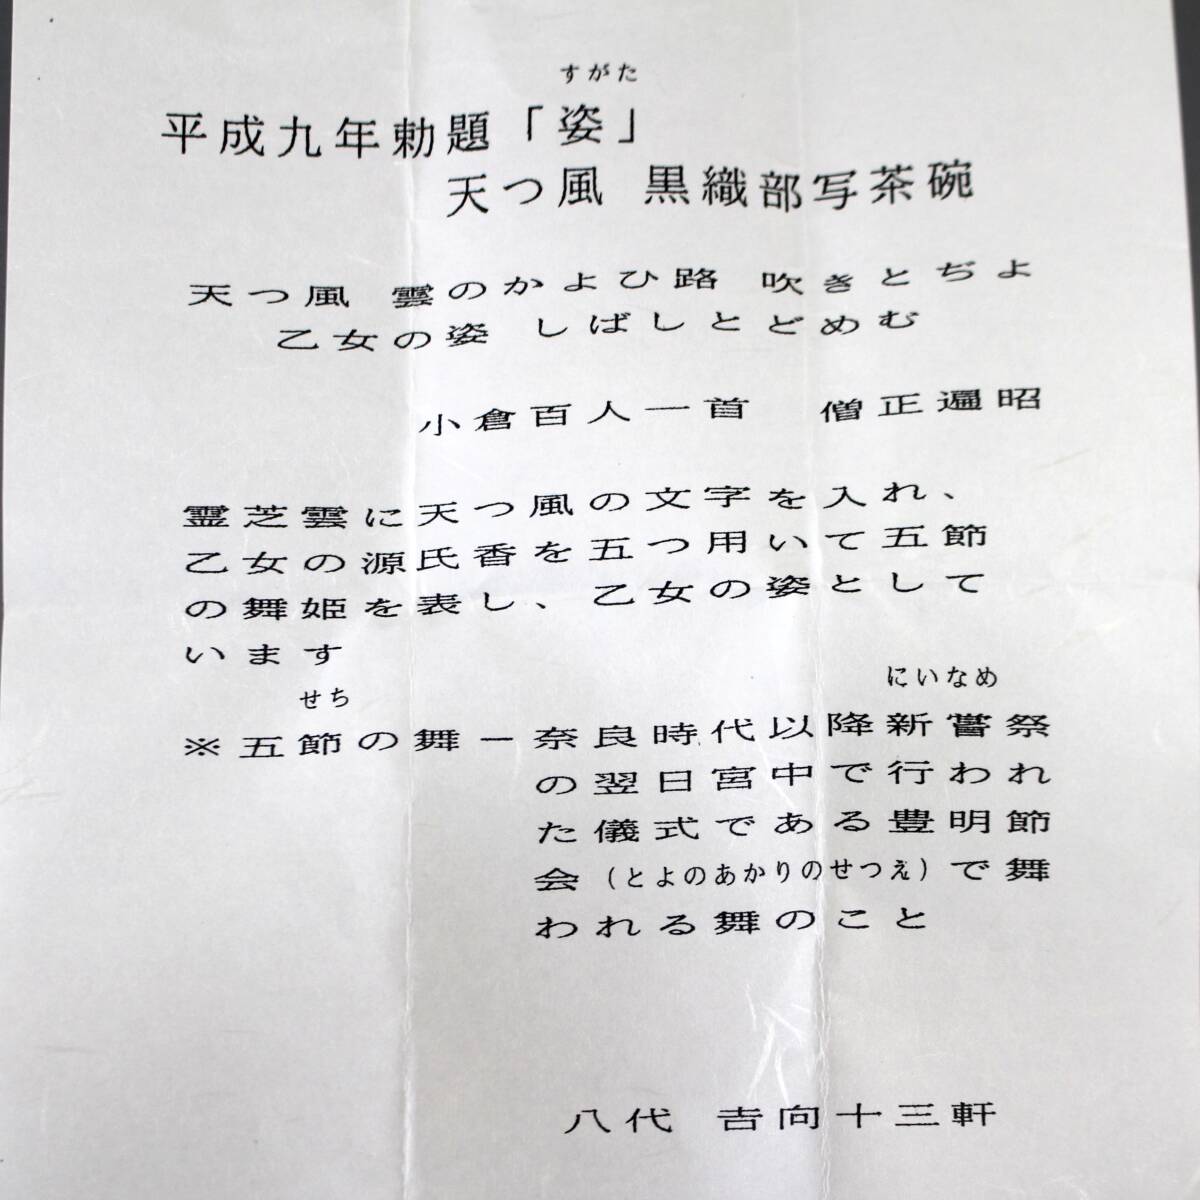 すがた
平成九年勅題「姿」
天つ風 黒織部写茶碗
天つ風 雲のかよひ路 吹きとぢよ
乙女の姿 しばしとどめむ
小倉百人一首 僧正遍昭
霊芝雲に天つ風の文字を入れ、
乙女の源氏香を五つ用いて五節
の舞姫を表し、乙女の姿として
います
せち
にいなめ
※五節の舞－奈良時代以降新嘗祭
の翌日宮中で行われ
た儀式である豊明節
会(とよのあかりのせつえ)で舞
われる舞のこと
八代 吉向十三軒